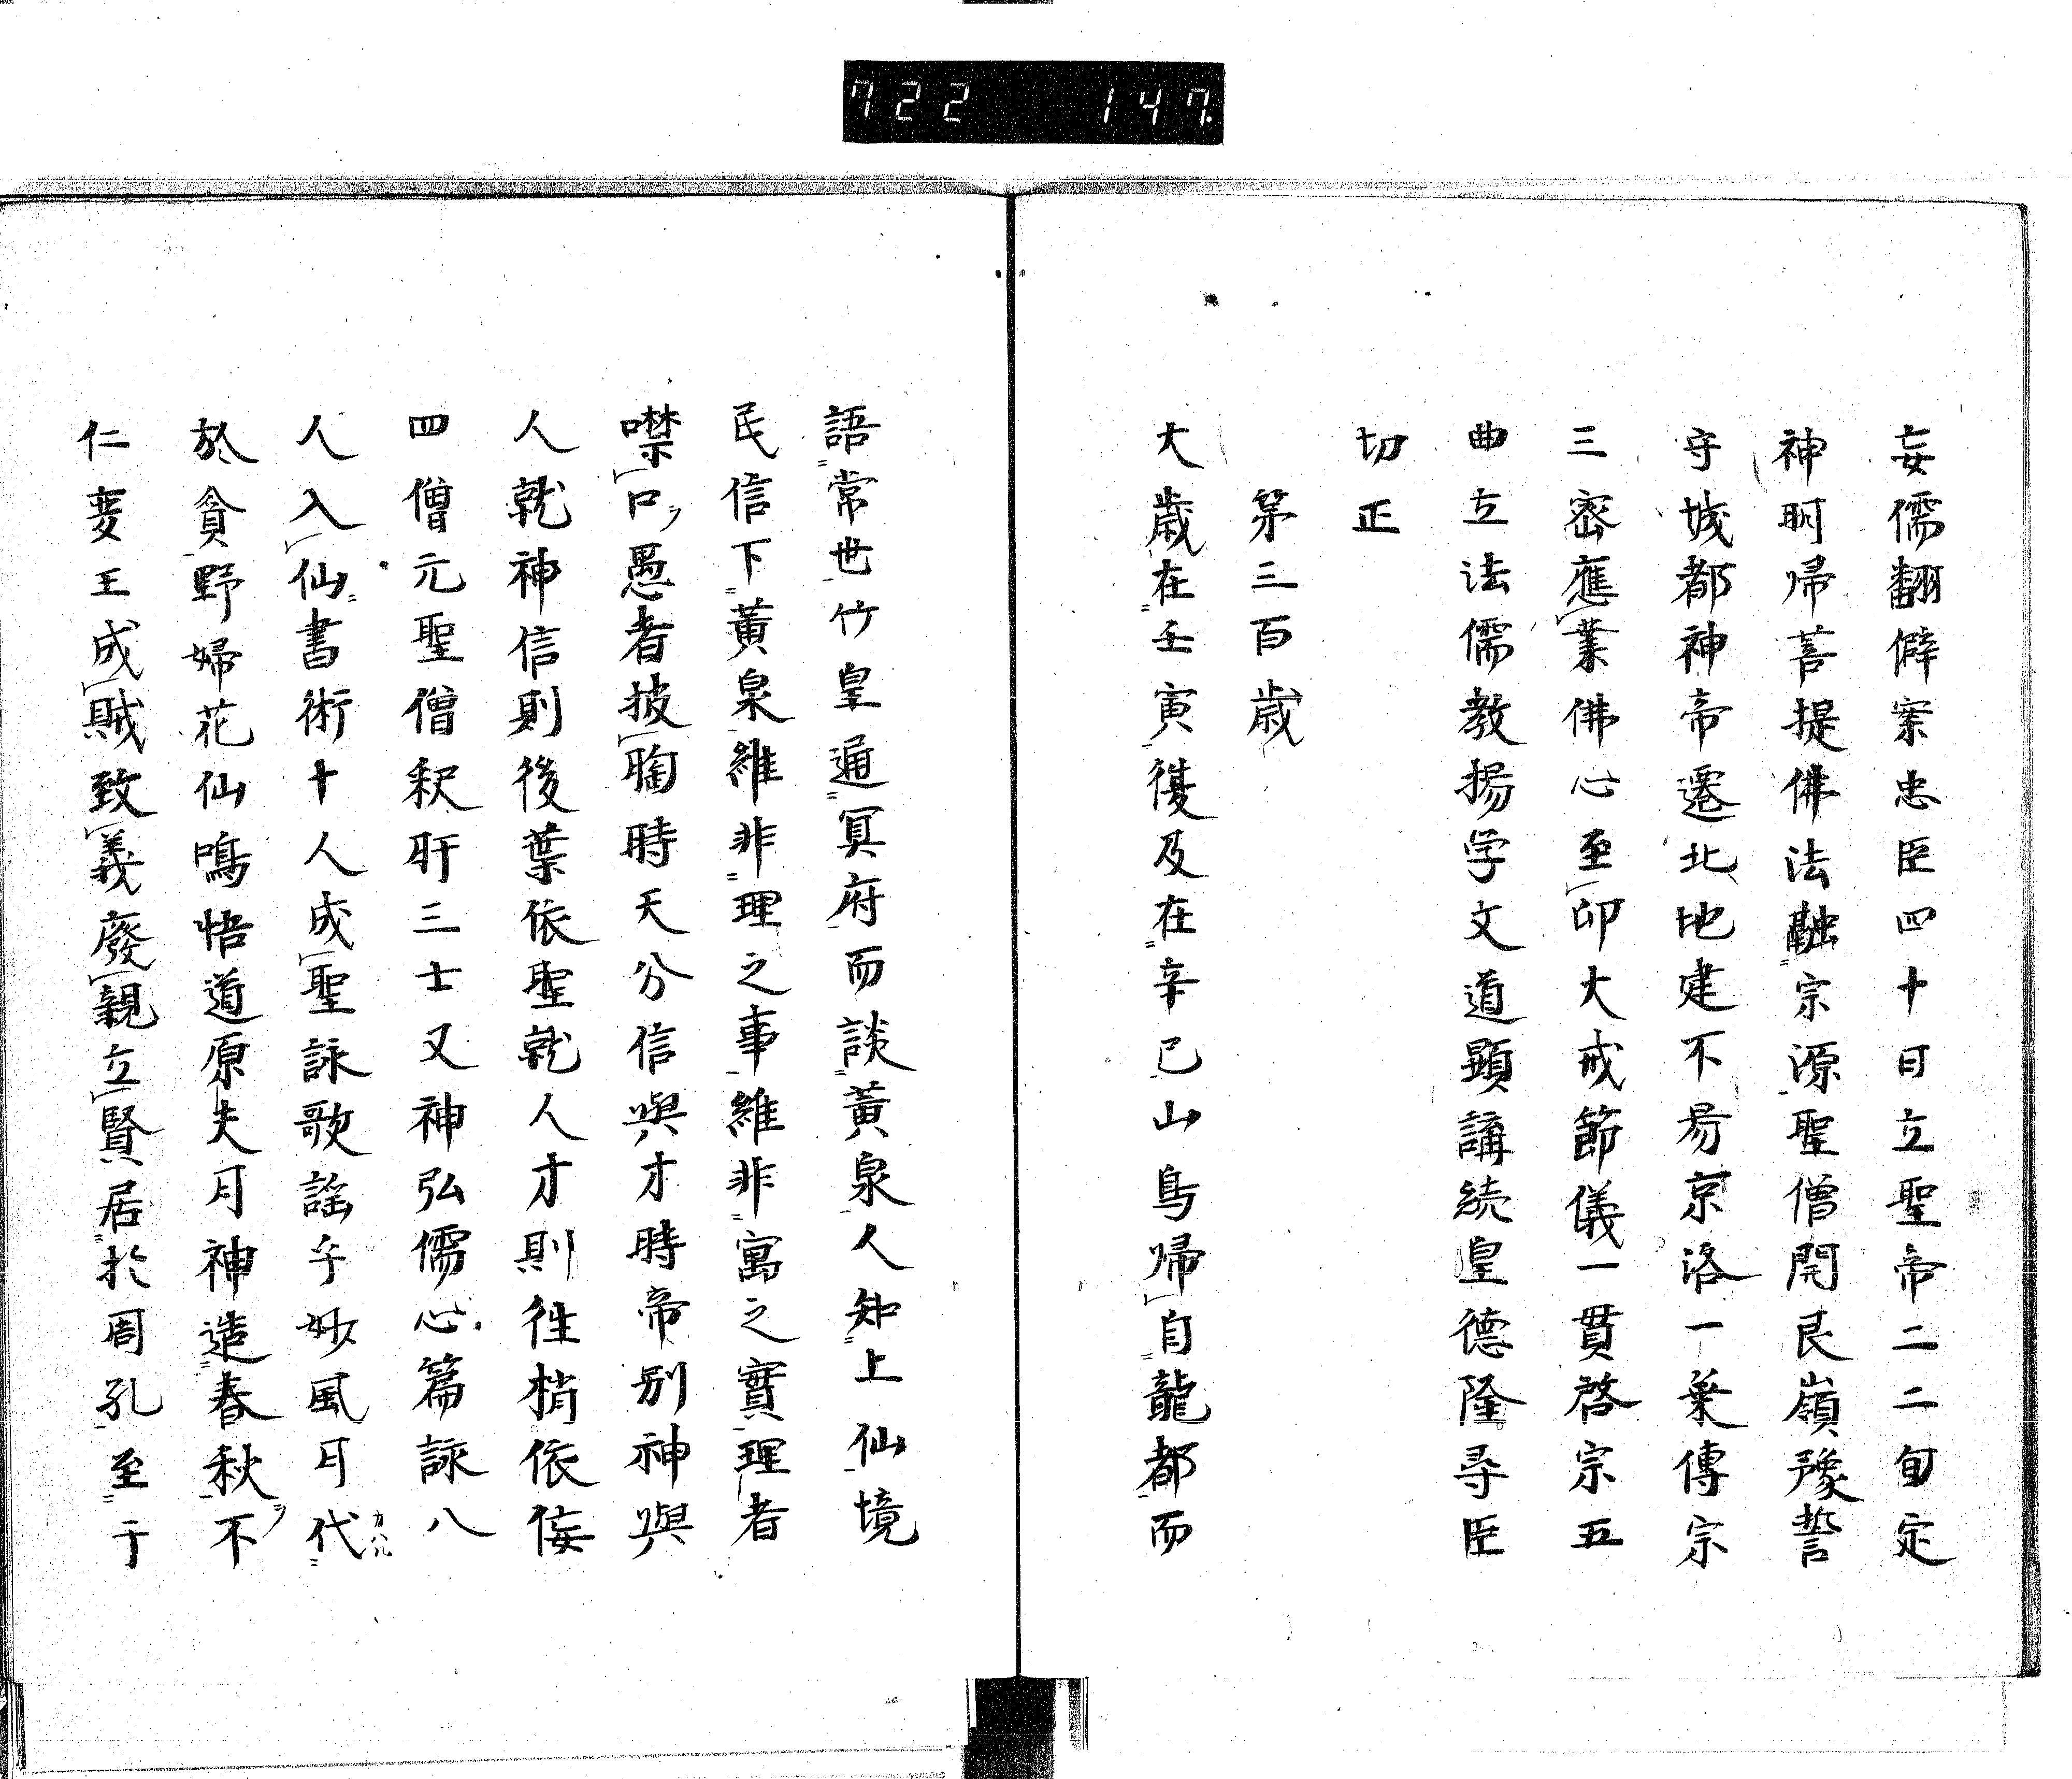 722 147.
妄儒翻僻案忠臣四十日立聖帝二二旬定
神明帰菩提佛法融宗源聖僧開艮嶺豫誓
守城都神帝遷北地建不易京洛一乗傳宗
三密應業佛心至印大戒節儀一貫啓宗五
曲立法儒教揚学文道顕講続皇德隆尋臣
切正
第三百歳
大歳在壬寅復及在辛已山鳥帰自龍都而
語常世竹皇通冥府而談黄泉人知上仙境
民信下黄泉維非理之事維非寓之實理者
噤口愚者披胸時天分信與才時帝別神與
人就神信則後葉依聖就人才則徃梢依
四僧元聖僧釈肝三士又神弘儒心篇詠八
人入仙書術十人成聖詠歌謡乎妙風月代
於貪野婦花仙鳴悟道原夫月神造春秋不
仁变王成賊致義廢親立賢居於周孔至于